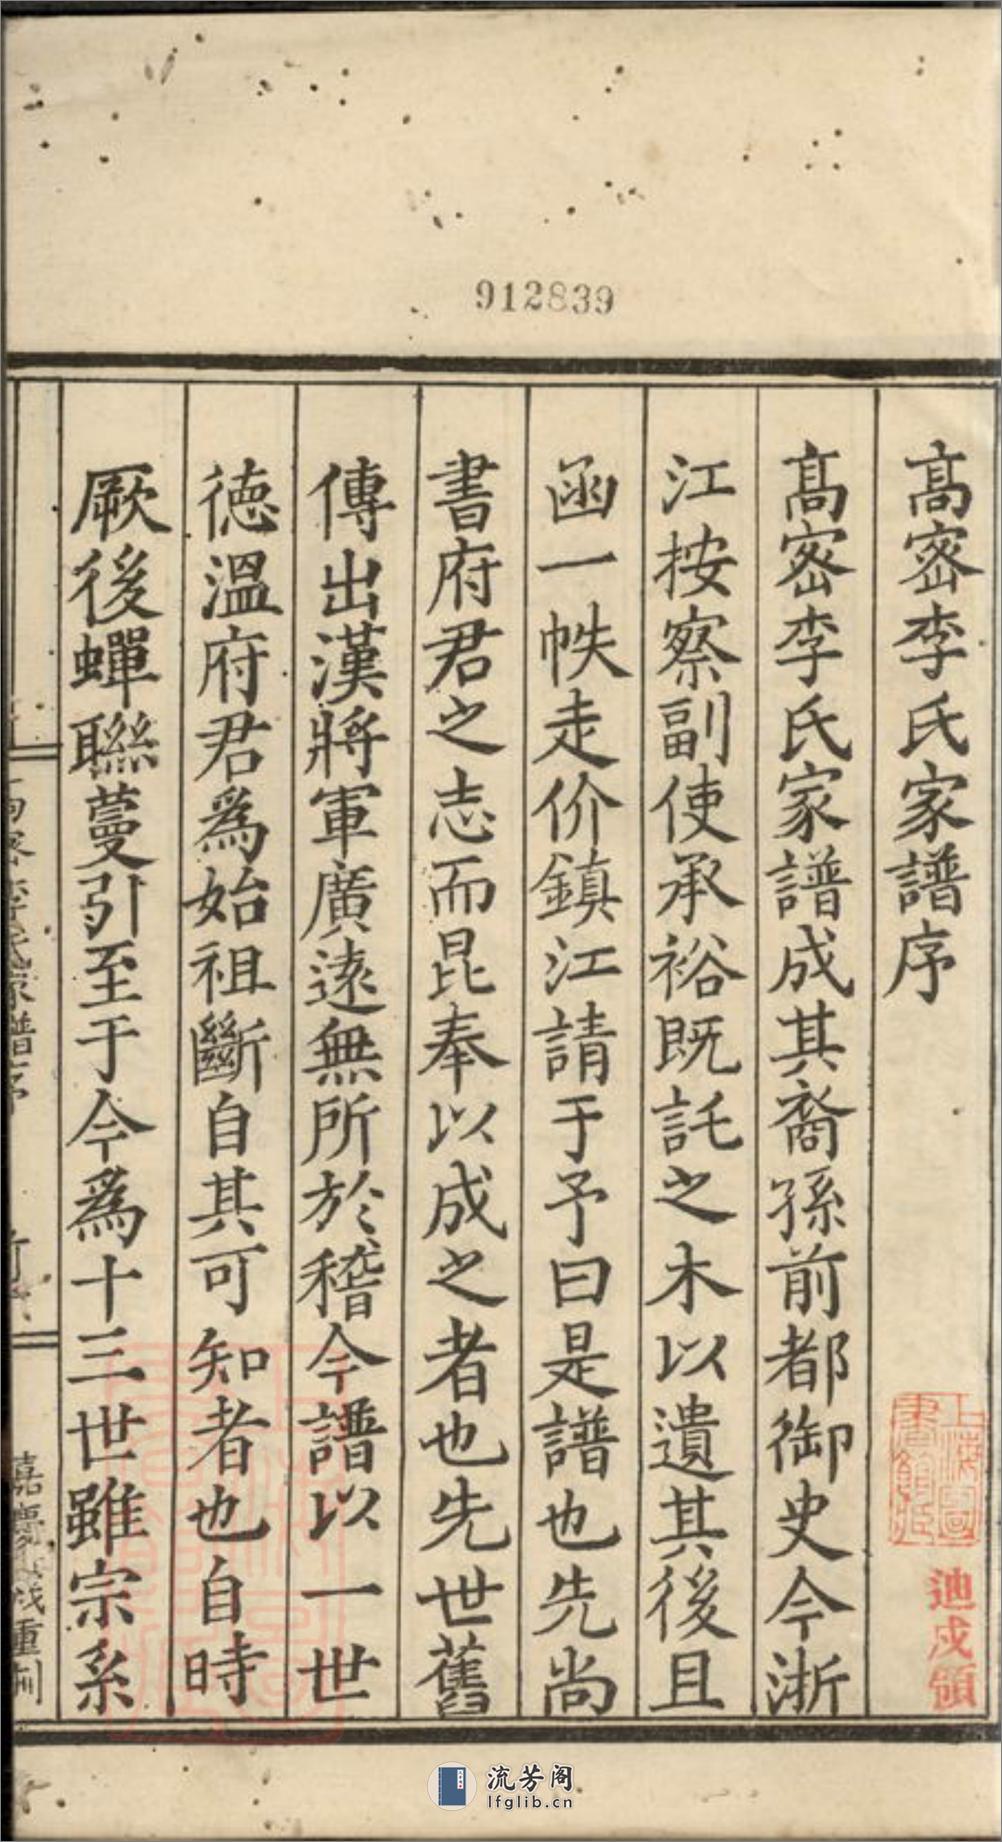 912839
高密李氏家譜序
高密李氏家譜成其裔孫前都御史今浙
江按察副使承裕既託之木以遺其後且
函一帙走价鎮江請于予曰是譜也先尚
書府君之志而昆奉以成之者也先世舊
傳出漢將軍廣遠無所於稽今譜以一世
徳溫府君爲始祖斷自其可知者也自時
厥後蟬聯蔓引至于今爲十三世雖宗系
上海圖書館藏
流芳阁
lfglib.cn